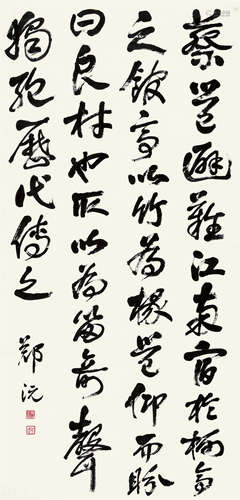 蔡邕避難江南宿於柯亭
之館亭以竹為椽邕仰而眄
曰良材也取以為笛奇聲
獨絕歷代傳之
鄭沅